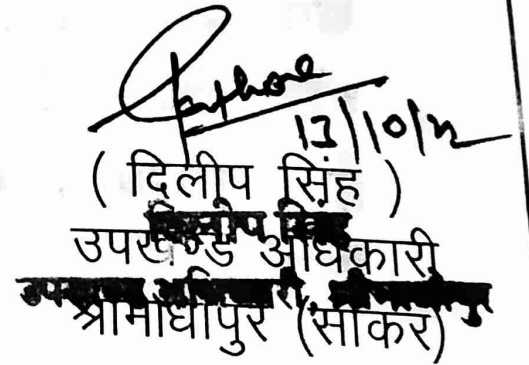 13/10/22
( दिलीप सिंह )
उपखण्ड अधिकारी
श्रीमाधोपुर (सीकर)